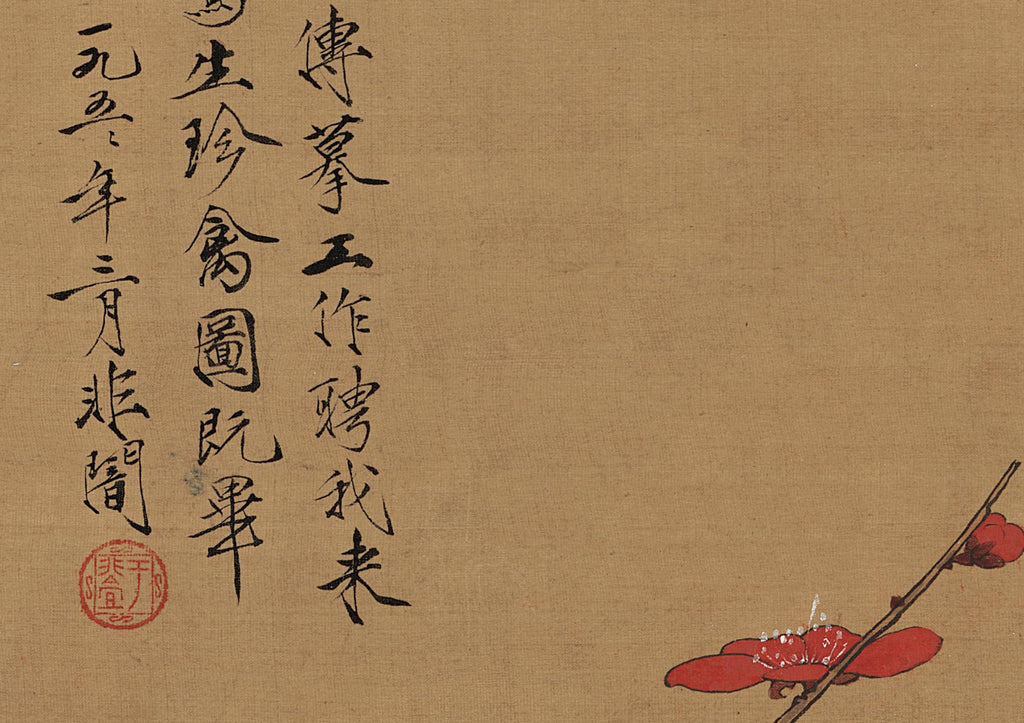 傳摹工作聘我来
生珍禽圖既畢
一九五〻年三月非闇